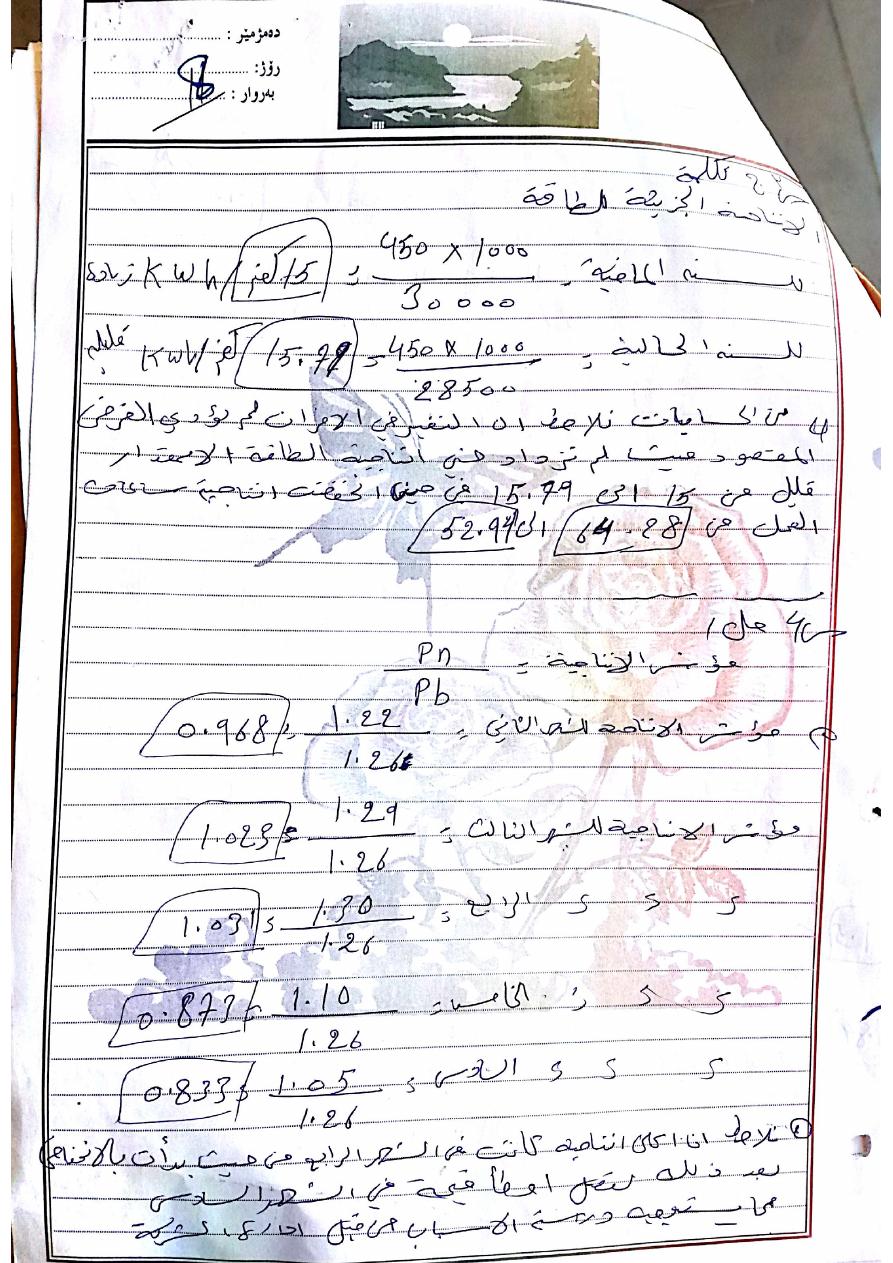 دەمژمێر :
رۆژ:
بەروار :
8
تكلمة
الانتاجية الجزيئة للطاقة
للسنه الماضية = 450 × 1000 / 30000 = 15 كغم / KWh زيادة
للسنه الحالية = 450 × 1000 / 28500 = 15.79 كغم/KWh قليله
من الحسابات نلاحظ ان التغير في الافران لم يؤدي الغرض
المقصود حيث لم تزداد حتى انتاجية الطاقة الا بمقدار
قليل من 15 الى 15.79 في حين انخفضت انتاجية ساعات
العمل من 64.28 الى 52.94
س4 حل /
مؤشر الانتاجية = Pn / Pb
مؤشر الانتاجية للشهر الثاني = 1.22 / 1.26 = 0.968
مؤشر الانتاجية للشهر الثالث = 1.29 / 1.26 = 1.023
= = = الرابع = 1.30 / 1.26 = 1.031
= = = الخامس = 1.10 / 1.26 = 0.873
= = = السادس = 1.05 / 1.26 = 0.833
نلاحظ ان اعلى انتاجيه كانت في الشهر الرابع في حيث بدأت بالانخفاض
بعد ذلك لتصل اوطأ قيمة في الشهر السادس
مما يستدعي دراسة الاسباب من قبل ادارة الشركة